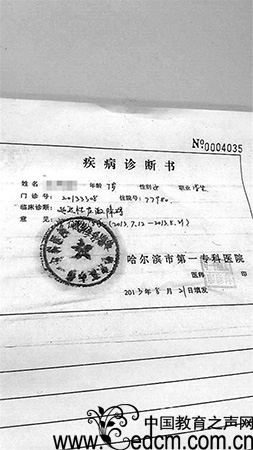 №0004035
疾病诊断书
姓名 年龄 7岁 性别 职业 学生
门诊号 20133308 住院号: 77980.
临床诊断:
意见 (2013.7.12-2013.8.21)
哈尔滨市第一专科医院
医师 印
2013年8月21日填发
中国教育之声网
www.edcm.com.cn